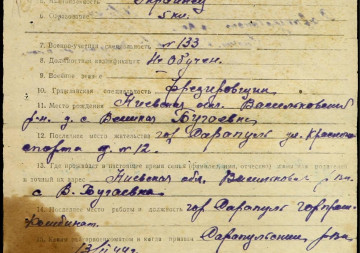 Украинец
6. Образование 5 кл.
7. Военно-учетная специальность № 133
8. Должностная квалификация Не обучен
9. Воинское звание
10. Гражданская специальность Фрезировщик
11. Место рождения Киевская обл. Васильковский
р-н д. с Великая Бугаевка
12. Последнее место жительства гор Сарапуль ул. Красно
спорта д. № 12.
13. Где проживает в настоящее время семья
и точный их адрес Киевская обл. Васильков р-он
с В. Бугаевка
14. Последнее место работы и должность гор Сарапуль горпром
комбинат.
15. Каким РВК призван Сарапульский
13/II 44 г.